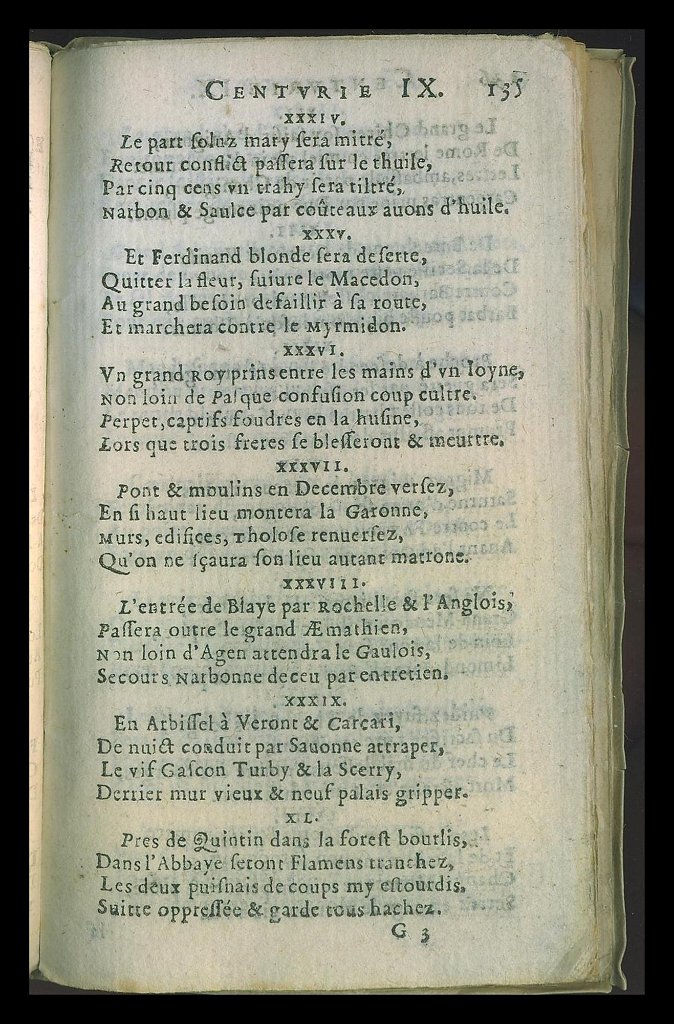 CENTVRIE IX. 135
XXXIV.
Le part soluz mary sera mitré,
Retour conflict passera sur le thuile,
Par cinq cens vn trahy sera tiltré,
Narbon & Saulce par coûteaux auons d'huile.
XXXV.
Et Ferdinand blonde sera deserte,
Quitter la fleur, suiure le Macedon,
Au grand besoin defaillir à sa route,
Et marchera contre le Myrmidon.
XXXVI.
Vn grand Roy prins entre les mains d'vn Ioyne,
Non loin de Pasque confusion coup cultre.
Perpet, captifs foudres en la husine,
Lors que trois freres se blesseront & meurtre.
XXXVII.
Pont & moulins en Decembre versez,
En si haut lieu montera la Garonne,
Murs, edifices, Tholose renuersez,
Qu'on ne sçaura son lieu autant matrone.
XXXVIII.
L'entrée de Blaye par Rochelle & l'Anglois,
Passera outre le grand Æmathien,
Non loin d'Agen attendra le Gaulois,
Secours Narbonne deceu par entretien.
XXXIX.
En Arbissel à Veront & Carcari,
De nuict conduit par Sauonne attraper,
Le vif Gascon Turby & la Scerry,
Derrier mur vieux & neuf palais gripper.
XL.
Pres de Quintin dans la forest bourlis,
Dans l'Abbaye seront Flamens tranchez,
Les deux puisnais de coups my estourdis,
Suitte oppressée & garde tous hachez.
G 3